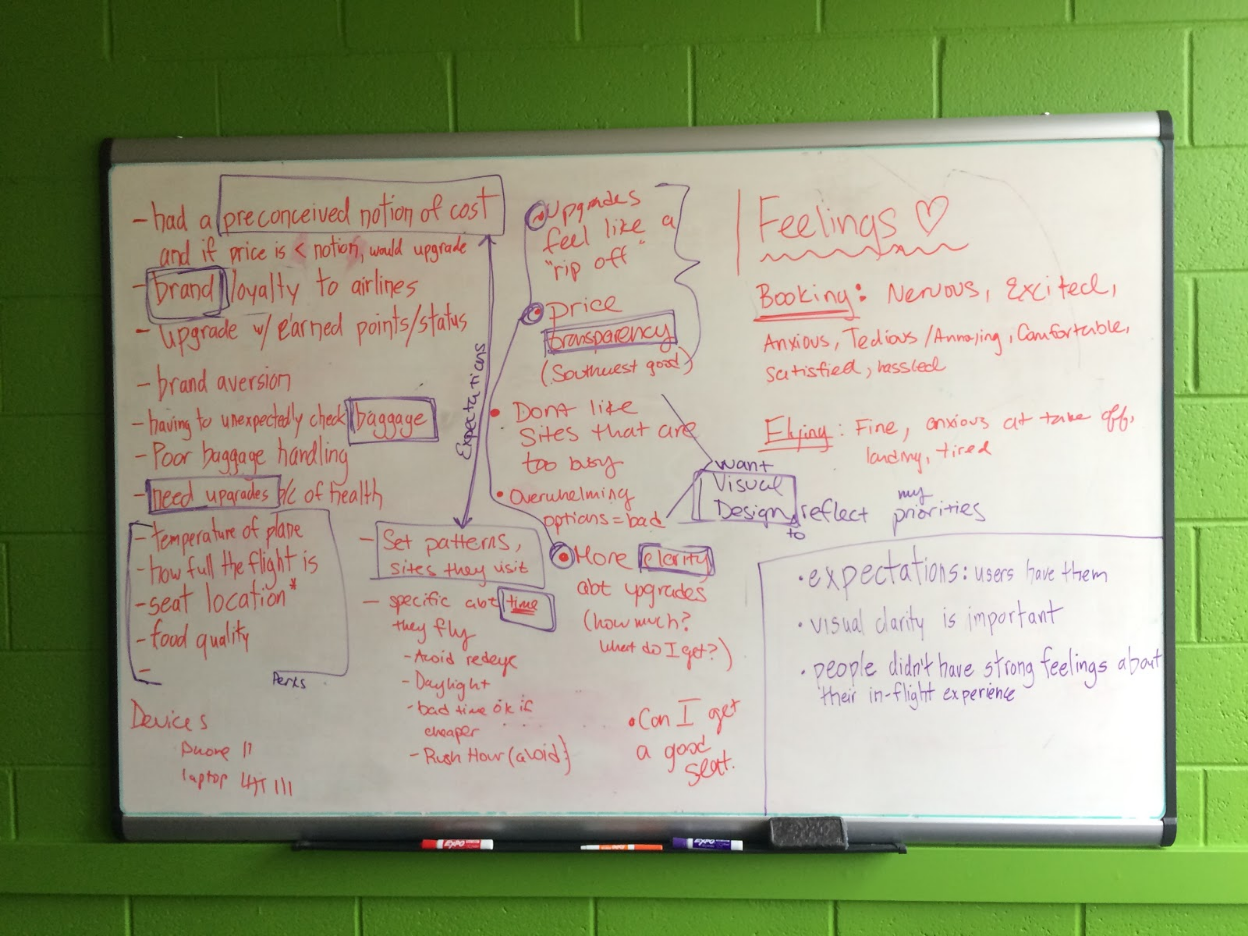 - had a preconceived notion of cost
and if price is < notion, would upgrade
- brand loyalty to airlines
- upgrade w/ earned points/status
- brand aversion
- having to unexpectedly check baggage
- Poor baggage handling
- need upgrades b/c of health
- temperature of plane
- how full the flight is
- seat location*
- food quality
-
Perks
Devices
phone ||
laptop |||| |||
Expectations
- Set patterns,
sites they visit
- specific abt time
they fly
- Avoid redeye
- Daylight
- bad time ok if
cheaper
- Rush Hour (avoid)
• Upgrades
feel like a
"rip off"
• price
transparency
(Southwest good)
• Dont like
sites that are
too busy
• Overwhelming
options = bad
• More clarity
abt upgrades
(how much?
What do I get?)
• Can I get
a good
seat.
want
Visual
Design to reflect my priorities
Feelings ♡
Booking: Nervous, Excited,
Anxious, Tedious/Annoying, Comfortable,
satisfied, hassled
Flying: Fine, anxious at take off,
landing, tired
• expectations: users have them
• visual clarity is important
• people didn't have strong feelings about
their in-flight experience
EXPO
EXPO